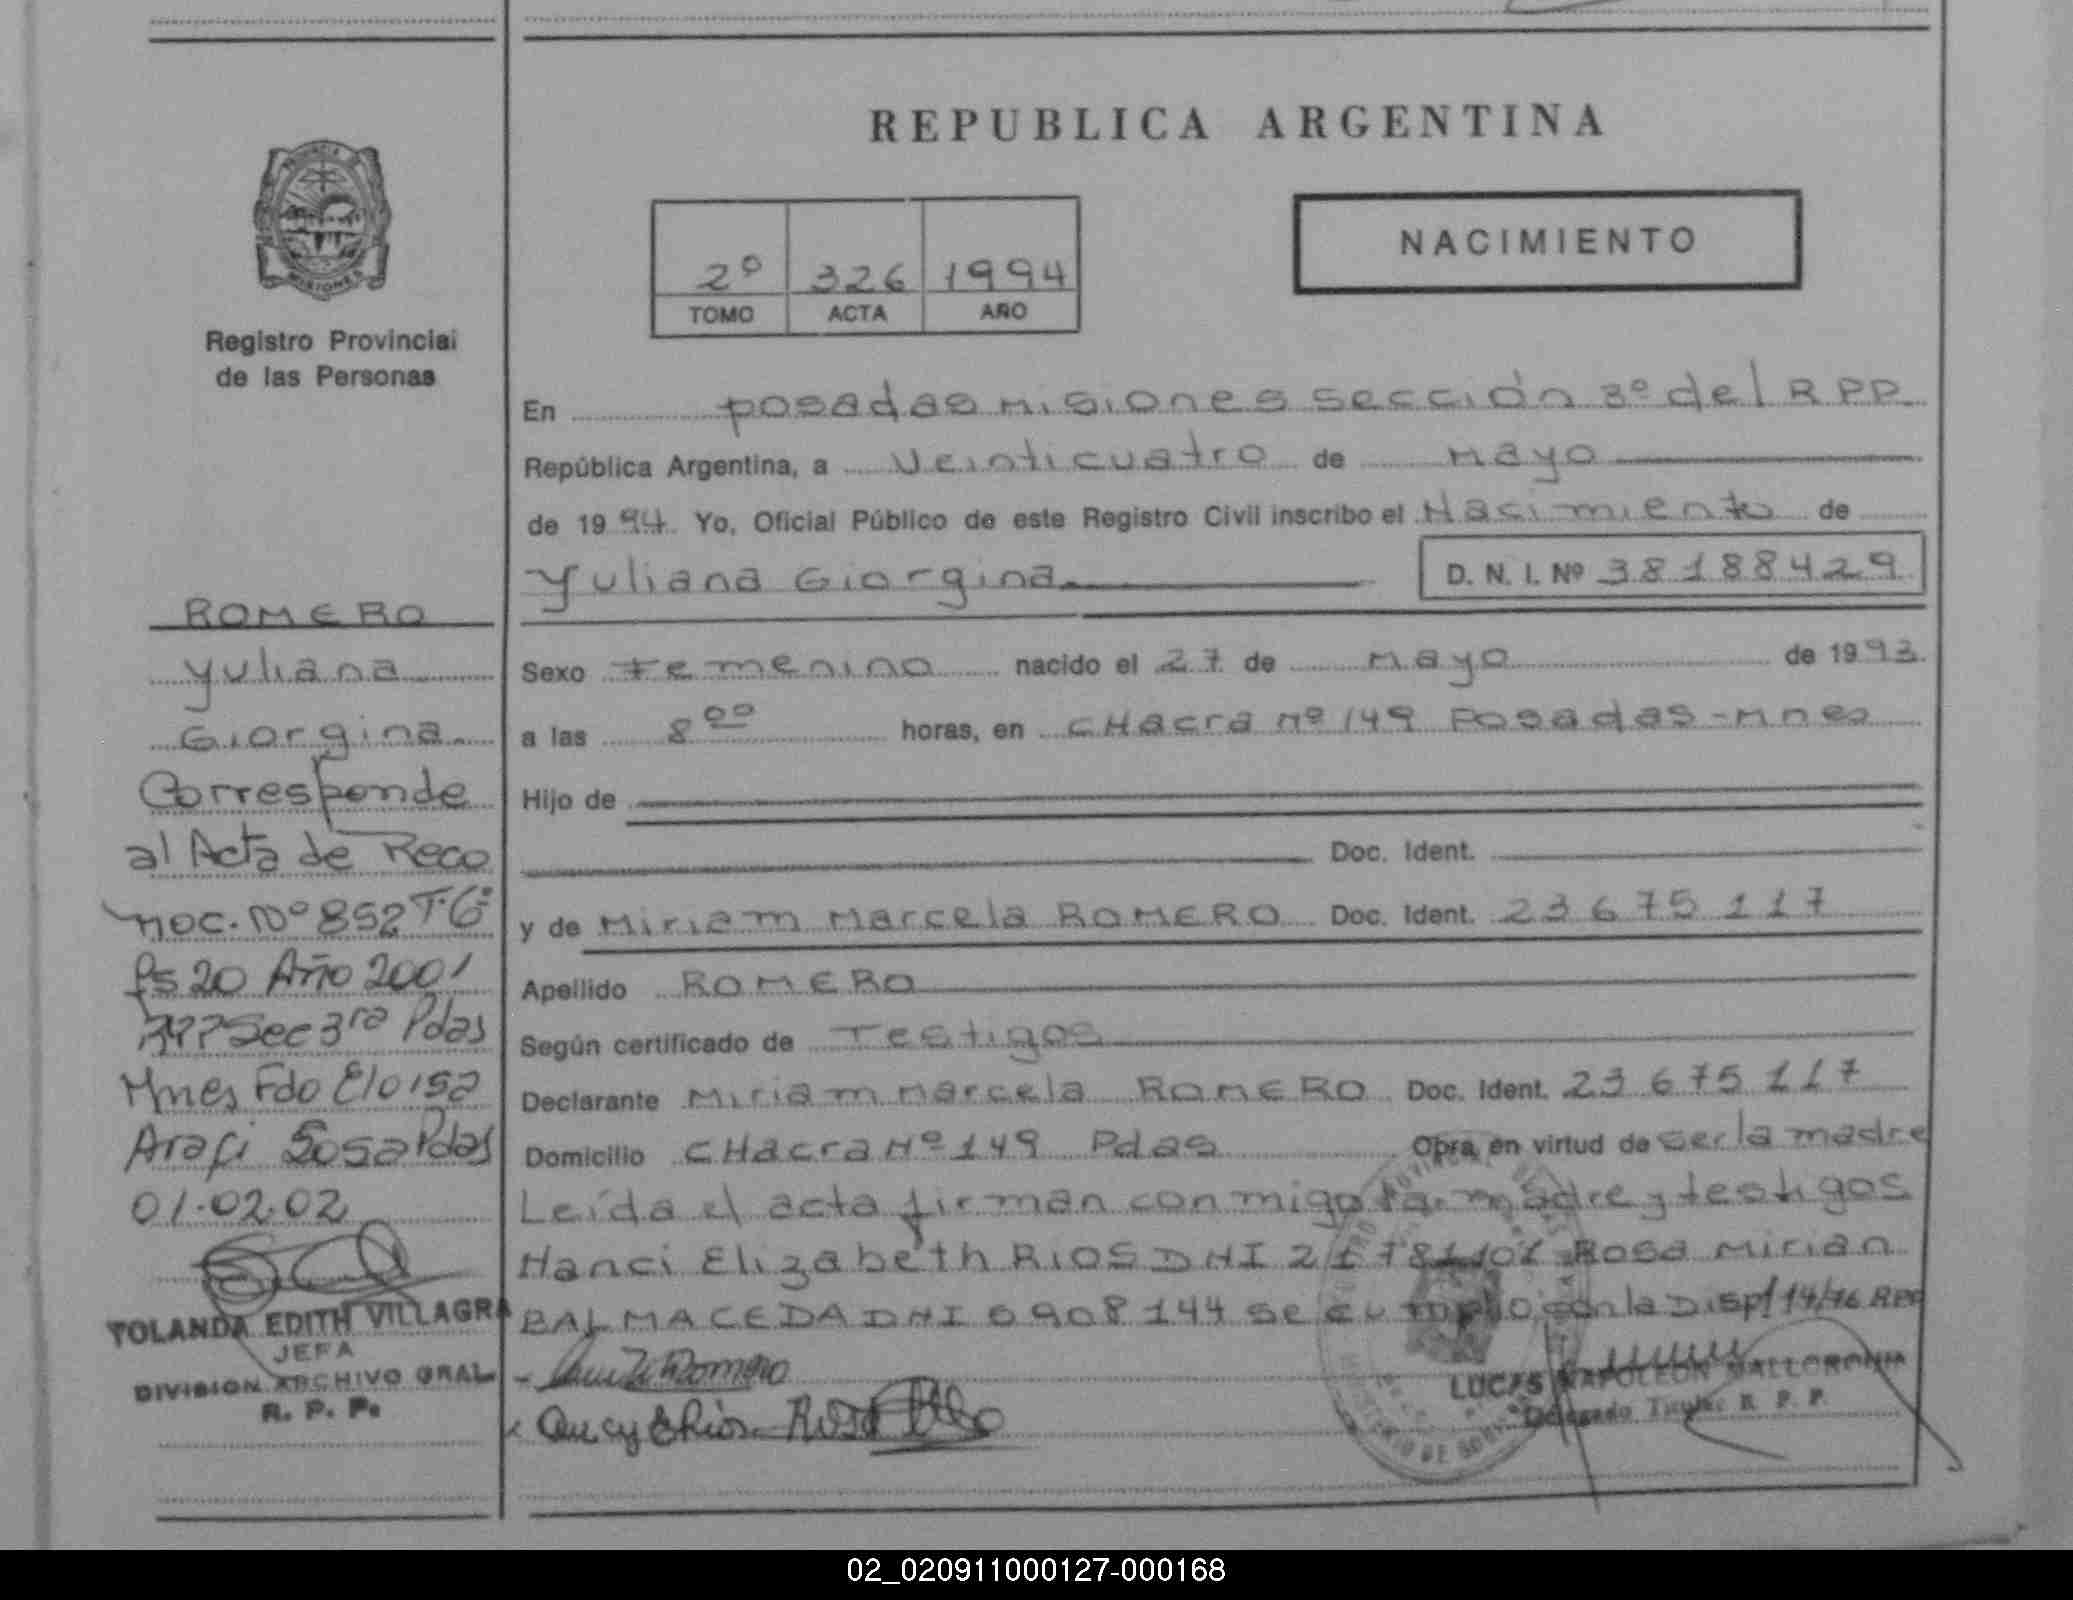 REPUBLICA ARGENTINA
NACIMIENTO
2º 326 1994
TOMO ACTA AÑO
PROVINCIA DE
MISIONES
Registro Provincial
de las Personas
ROMERO
Yuliana
Giorgina
Corresponde
al Acta de Reco
noc. Nº 852 T. 6º
fs 20 Año 2001
RPP Sec 3ra Pdas
Mnes Fdo Eloisa
Sosa Pdas
01.02.02
YOLANDA EDITH VILLAGRA
JEFA
DIVISION ARCHIVO GRAL
R. P. P.
En Posadas Misiones sección 3º del RPP
República Argentina, a Veinticuatro de Mayo
de 1994 Yo, Oficial Público de este Registro Civil inscribo el Nacimiento de
Yuliana Giorgina D. N. I. Nº 38188429
Sexo Femenino nacido el 27 de Mayo de 1993
a las 8 00 horas, en CHacra Nº 149 Posadas-Mnes
Hijo de
Doc. Ident.
y de Miriam Marcela ROMERO Doc. Ident. 23675117
Apellido ROMERO
Según certificado de Testigos
Declarante Miriam Marcela ROMERO Doc. Ident. 23675117
Domicilio CHacra Nº 149 Pdas Obra en virtud de ser la madre
Leída el acta firman conmigo la madre y testigos
Nanci Elizabeth RIOS DNI Rosa Mirian
BALMACEDA DNI 6908144 se cumplio con la Disp/ 14/76 RPP
Romero
Rios Rosa
LUCAS NAPOLEON
Delegado Titular R. P. P.
02_020911000127-000168